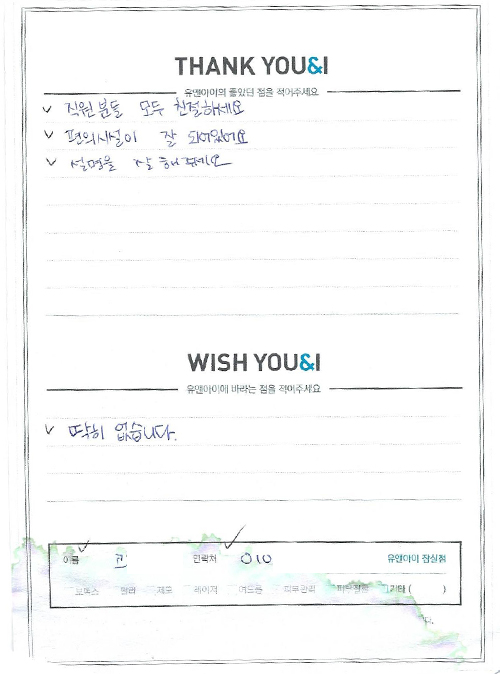 THANK YOU&I
유앤아이의 좋았던 점을 적어주세요
✓ 직원분들 모두 친절하세요
✓ 편의시설이 잘 되어있어요
✓ 설명을 잘 해주세요
WISH YOU&I
유앤아이에 바라는 점을 적어주세요
✓ 딱히 없습니다.
이름 고 연락처 010 유앤아이 잠실점
보톡스 필러 제모 레이저 여드름 피부관리 기타 ( )